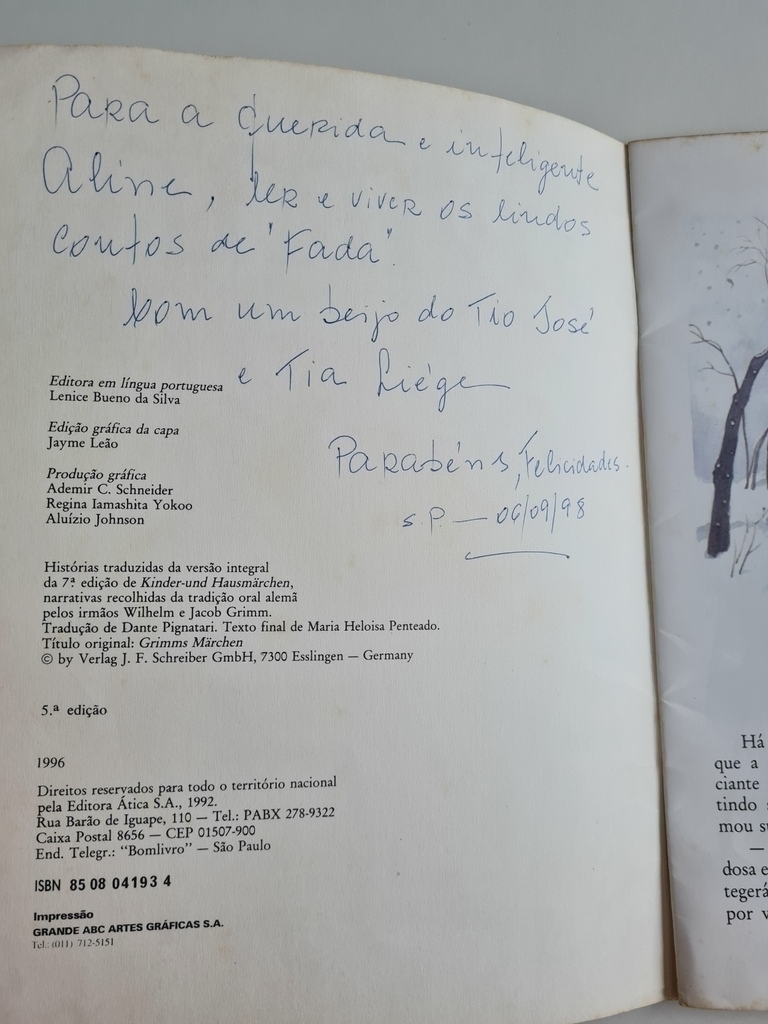 Para a querida e inteligente
Aline, ler e viver os lindos
contos de "Fada".
Com um beijo do Tio José
e Tia Liége
Parabéns, Felicidades.
S.P. — 06/09/98
Editora em língua portuguesa
Lenice Bueno da Silva
Edição gráfica da capa
Jayme Leão
Produção gráfica
Ademir C. Schneider
Regina Iamashita Yokoo
Aluízio Johnson
Histórias traduzidas da versão integral
da 7ª edição de Kinder-und Hausmärchen,
narrativas recolhidas da tradição oral alemã
pelos irmãos Wilhelm e Jacob Grimm.
Tradução de Dante Pignatari. Texto final de Maria Heloisa Penteado.
Título original: Grimms Märchen
© by Verlag J. F. Schreiber GmbH, 7300 Esslingen — Germany
5.ª edição
1996
Direitos reservados para todo o território nacional
pela Editora Ática S.A., 1992.
Rua Barão de Iguape, 110 — Tel.: PABX 278-9322
Caixa Postal 8656 — CEP 01507-900
End. Telegr.: "Bomlivro" — São Paulo
ISBN 85 08 04193 4
Impressão
GRANDE ABC ARTES GRÁFICAS S.A.
Tel.: (011) 712-5151
Há
que a
ciante
tindo
mou su
—
dosa e
tegerá
por v